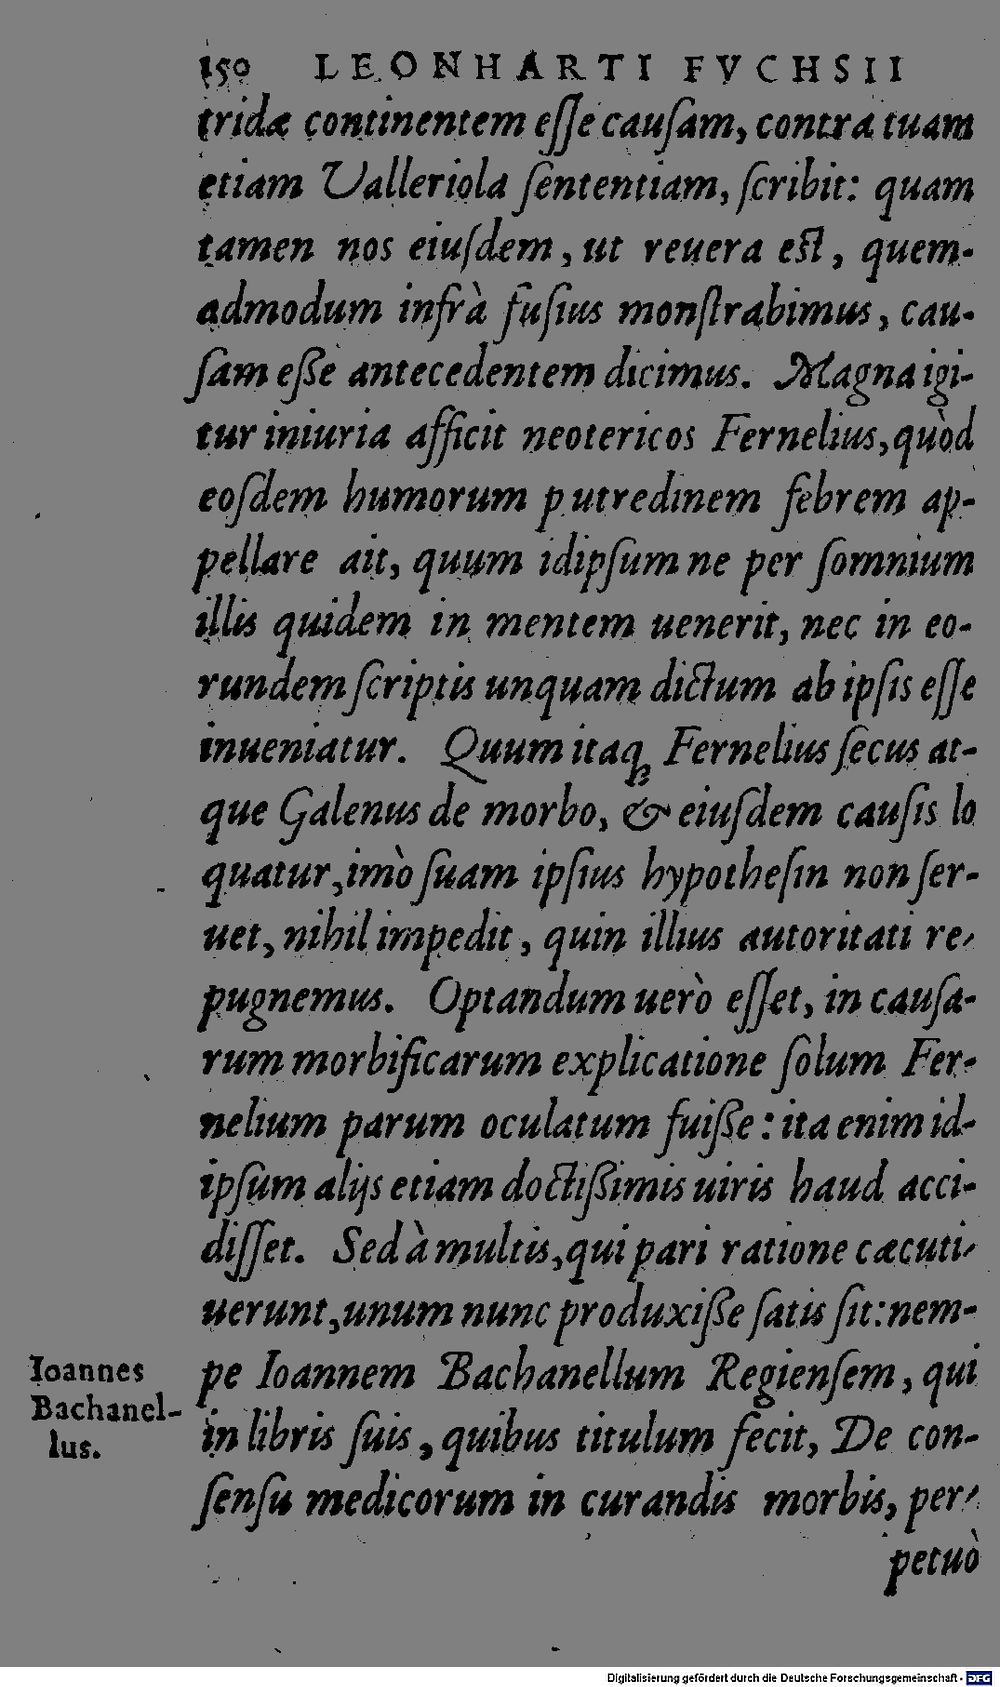 150 LEONHARTI FVCHSII
tridæ continentem eſſe cauſam, contra tuam
etiam Valleriola ſententiam, ſcribit: quam
tamen nos eiuſdem, ut reuera eſt, quem-
admodum infrà fuſius monſtrabimus, cau-
ſam eſſe antecedentem dicimus. Magna igi-
tur iniuria afficit neotericos Fernelius, quòd
eoſdem humorum putredinem febrem ap-
pellare ait, quum idipſum ne per ſomnium
illis quidem in mentem uenerit, nec in eo-
rundem ſcriptis unquam dictum ab ipſis eſſe
inueniatur. Quum itaq; Fernelius ſecus at-
que Galenus de morbo, & eiuſdem cauſis lo
quatur, imò ſuam ipſius hypotheſin non ſer-
uet, nihil impedit, quin illius autoritati re-
pugnemus. Optandum uerò eſſet, in cauſa-
rum morbificarum explicatione ſolum Fer-
nelium parum oculatum fuiſſe: ita enim id-
ipſum alijs etiam doctiſſimis uiris haud acci-
diſſet. Sed à multis, qui pari ratione cæcuti-
uerunt, unum nunc produxiſſe ſatis ſit: nem-
Ioannes
Bachanel-
lus.
pe Ioannem Bachanellum Regienſem, qui
in libris ſuis, quibus titulum fecit, De con-
ſenſu medicorum in curandis morbis, per-
petuò
Digitalisierung gefördert durch die Deutsche Forschungsgemeinschaft - DFG